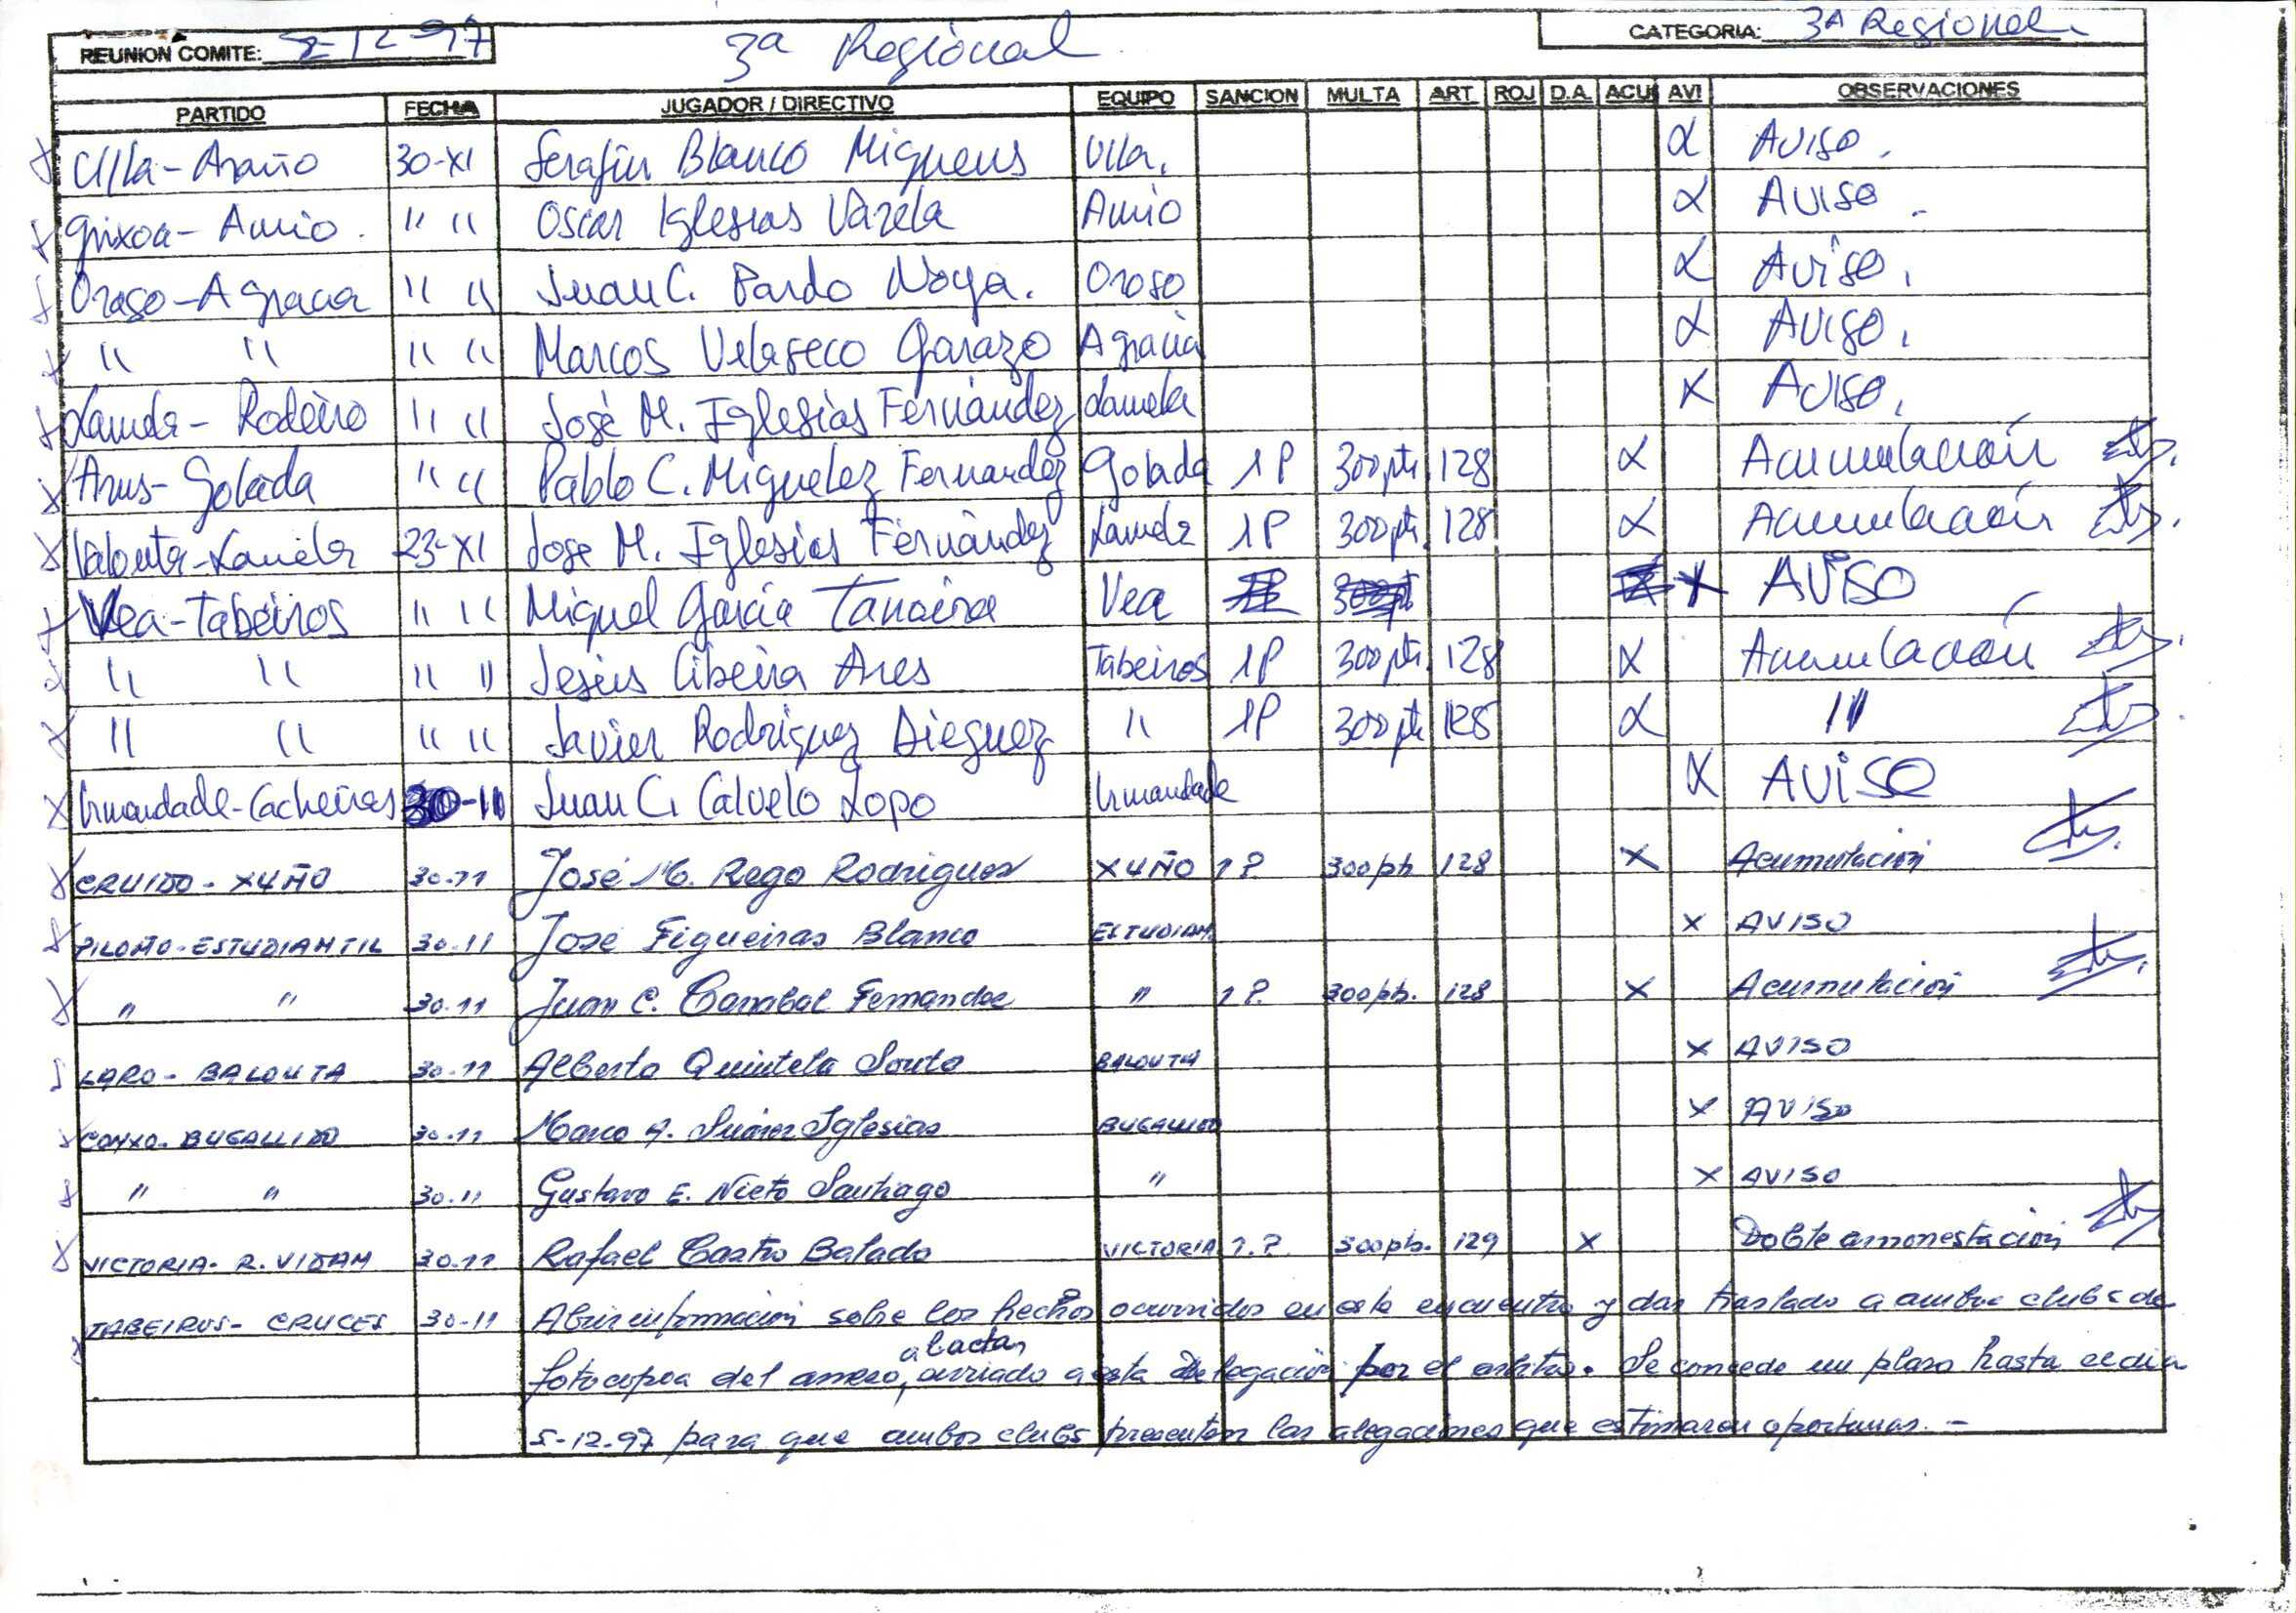 REUNION COMITE: 2-12-97 3ª Regional CATEGORIA: 3A Regional
PARTIDO FECHA JUGADOR / DIRECTIVO EQUIPO SANCION MULTA ART. ROJ D.A. ACU AVI OBSERVACIONES
Ulla-Araño 30-XI Serafin Blanco Miguens Ulla. X Aviso.
Grixoa-Amio. " " Oscar Iglesias Varela Amio X Aviso.
Oroso-Agracia " " Juan C. Pardo Noya. Oroso X Aviso.
" " " " Marcos Velaseco Garazo Agracia X Aviso.
Lamela-Rodeiro " " José M. Iglesias Fernández Lamela X Aviso.
Arns-Golada " " Pablo C. Miguelez Fernandez Golada 1P 300 pts. 128 X Acumulación
Valouta-Lamela 23-XI Jose M. Iglesias Fernández Lamela 1P 300 pts. 128 X Acumulación
Vea-Tabeiros " " Miguel García Vea X AViSO
" " " " Jesús Ribeira Ares Tabeiros 1P 300 pts. 128 X Acumulación
" " " " Javier Rodriguez Dieguez " 1P 300 pts 128 X "
Irmandade-Cacheiras 30-11 Juan C. Calvelo Lopo Irmandade X AViSO
CRUIDO-XUÑO 30-11 José M. Rego Rodriguez XUÑO 1P. 300 pts 128 X Acumulación
PILOÑO-ESTUDIANTIL 30-11 José Figueiras Blanco ESTUDIAN. X AVISO
" " 30-11 Juan C. Carabal Fernandez " 1P. 300 pts. 128 X Acumulación
LARO-BALOUTA 30-11 Alberto Quintela Souto BALOUTA X AVISO
CONXO-BUGALLIDO 30-11 Marco A. Suárez Iglesias BUGALLIDO X AVISO
" " 30-11 Gustavo E. Nieto Santiago " X AVISO
VICTORIA-R. VIDAN 30-11 Rafael Castro Balado VICTORIA 1.P. 500 pts. 129 X Doble amonestación
TABEIROS-CRUCES 30-11 Abrir información sobre los hechos ocurridos en este encuentro y dar traslado a ambos clubs de
fotocopia del anexo al acta, enviado a esta Delegación por el arbitro. Se concede un plazo hasta el dia
5-12-97 para que ambos clubs presenten las alegaciones que estimaran oportunas.-